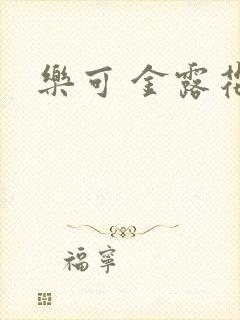 樂可 金露花
福寧